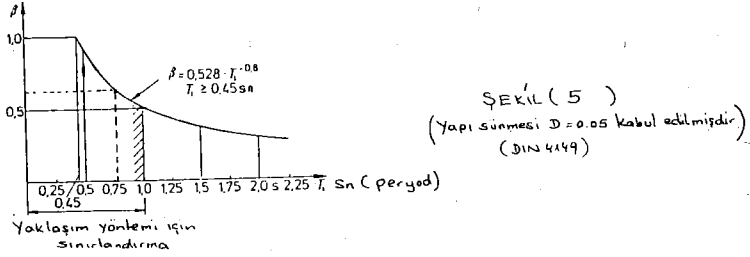 β
1,0
β=0,528·T₁^-0,8
T₁ ≥ 0.45sn
0,5
0,25/0,5 0,75 1,0 1,25 1,5 1,75 2,0 s 2,25 T₁ sn (peryod)
0,45
Yaklaşım yöntemi için
sınırlandırma
ŞEKİL ( 5 )
(Yapı sünmesi D=0.05 kabul edilmişdir)
(DIN 4149)